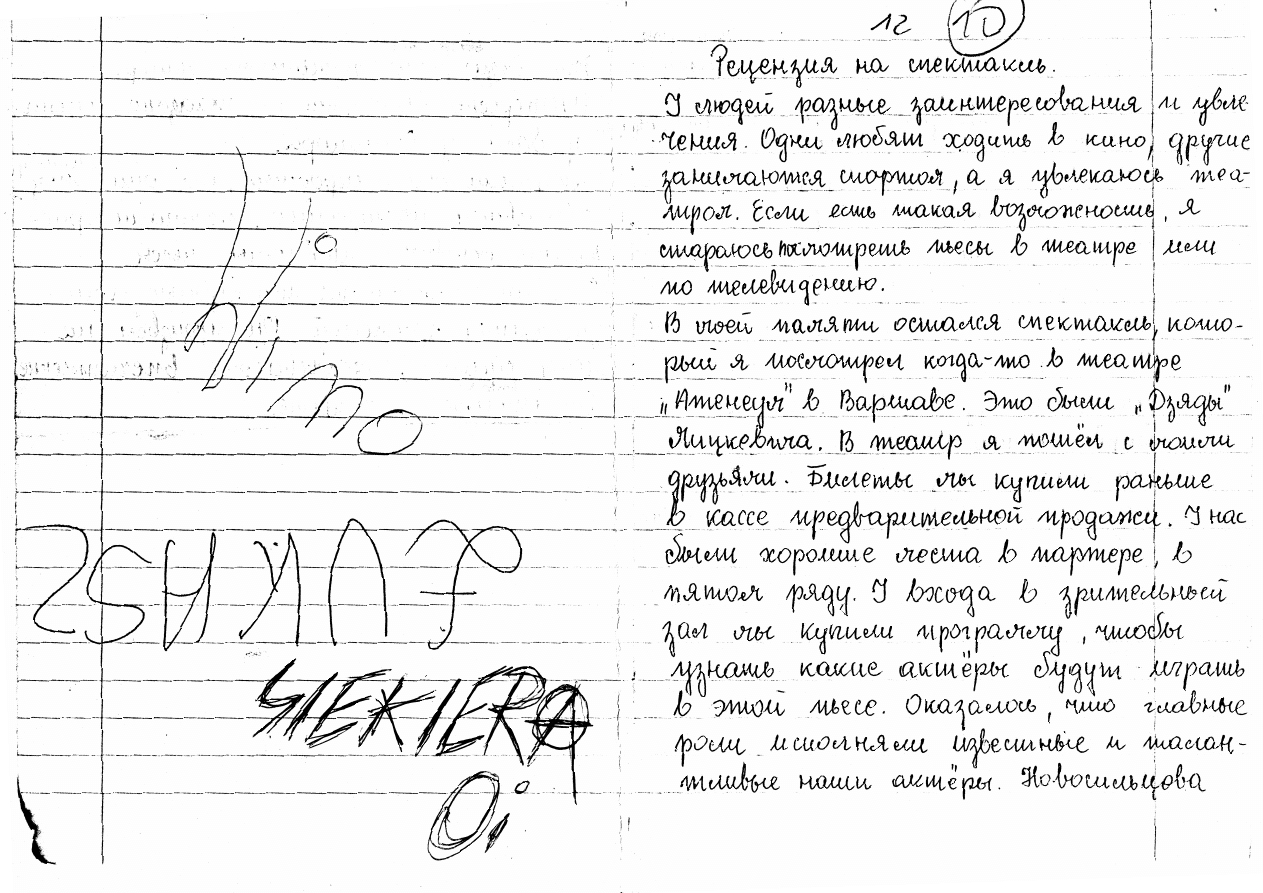 ŁUKASZ
SIEKIERA
Oi
12 10
Рецензия на спектакль.
У людей разные заинтересования и увле-
чения. Одни любят ходить в кино, другие
занимаются спортом, а я увлекаюсь теа-
тром. Если есть такая возможность, я
стараюсь посмотреть пьесы в театре или
по телевидению.
В моей памяти остался спектакль, кото-
рый я посмотрел когда-то в театре
„Атенеум" в Варшаве. Это были „Дзяды"
Мицкевича. В театр я пошёл с моими
друзьями. Билеты мы купили раньше
в кассе предварительной продажи. У нас
были хорошие места в партере, в
пятом ряду. У входа в зрительный
зал мы купили программу, чтобы
узнать какие актёры будут играть
в этой пьесе. Оказалось, что главные
роли исполняли известные и талан-
тливые наши актёры. Новосильцова